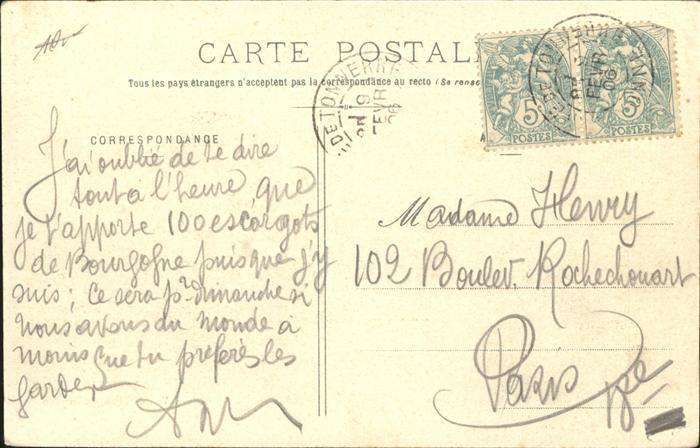 CARTE POSTALE
Tous les pays étrangers n'acceptent pas la correspondance au recto (Se rense
CORRESPONDANCE
J'ai oublié de te dire
tout a l'heure que
je t'apporte 100 escargots
de Bourgogne puisque j'y
suis; ce sera pr dimanche si
nous avons du monde à
moins que tu preferes les
garder
Madame Henry
102 Boulev. Rochechouart
Paris
5 POSTES
5 POSTES
DE TONNERRE
9
FEVR
06
FEVR
06